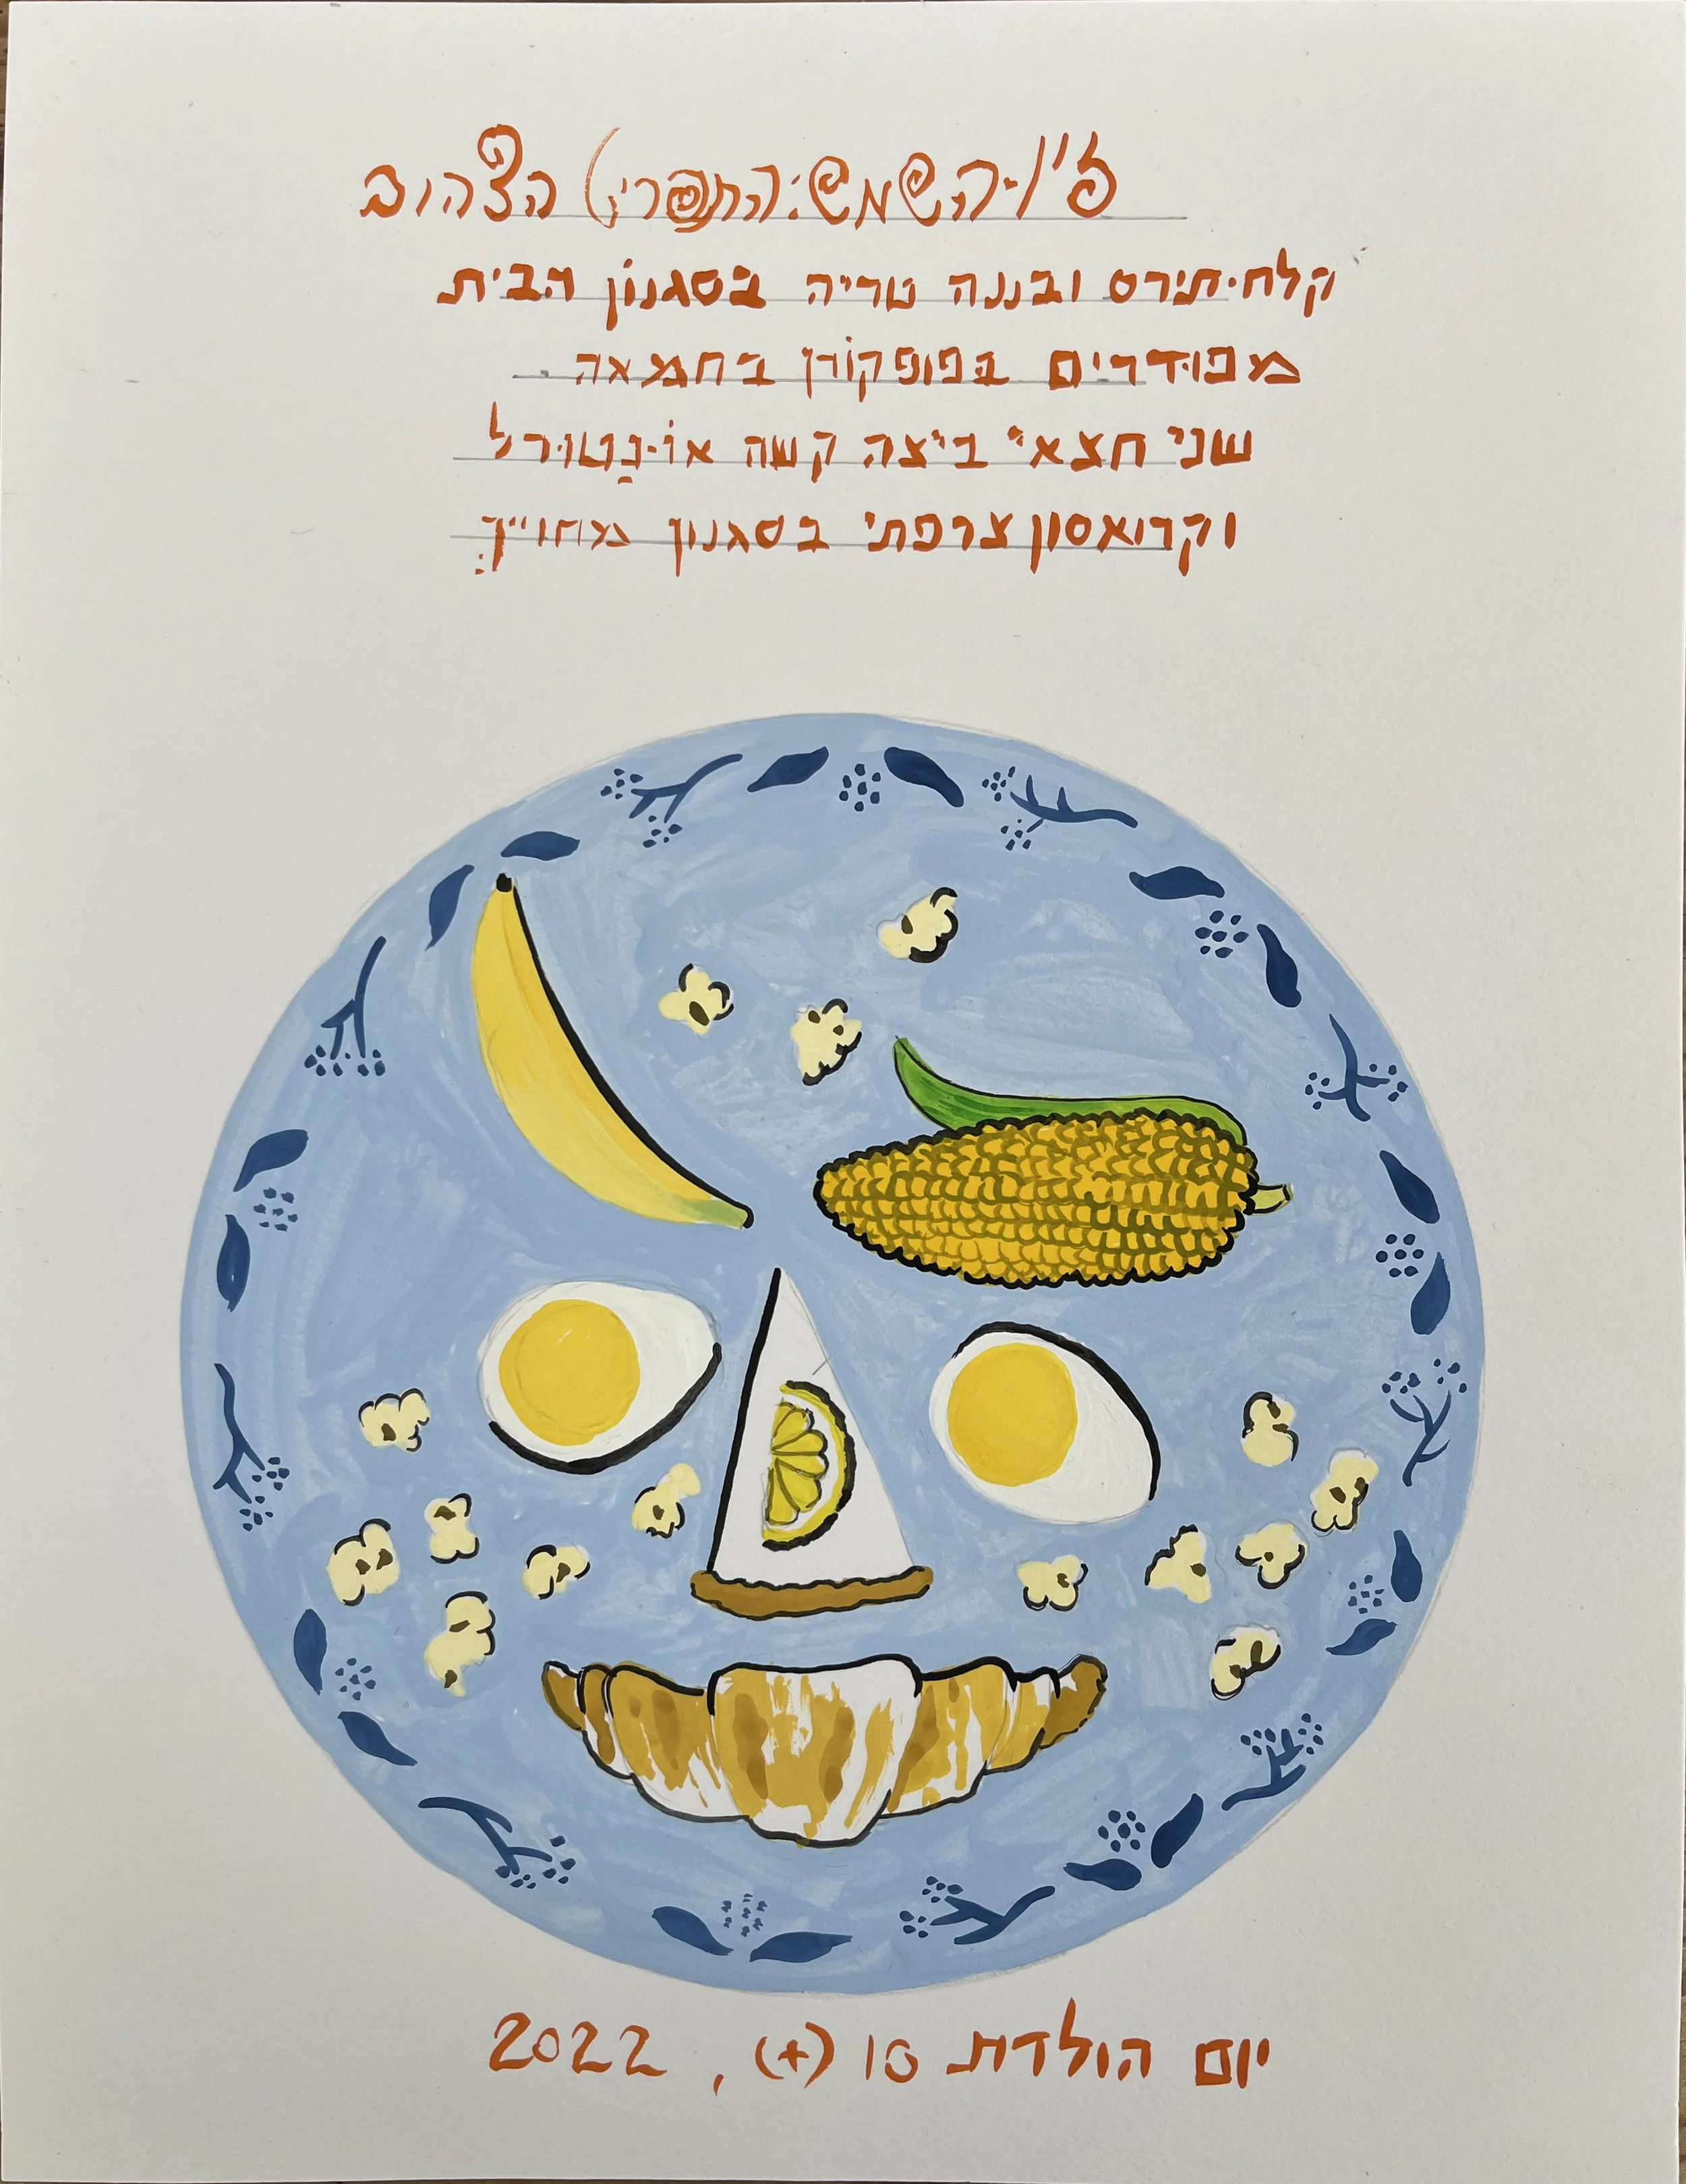 ז'ן-השמש: (התפריט) הצהוב
קלח-תירס ובננה טריה בסגנון הבית
מפודרים בפופקורן בחמאה
שני חצאי ביצה קשה או-נטורל
וקרואסון צרפתי בסגנון מחוייך:
יום הולדת 10 (+), 2022